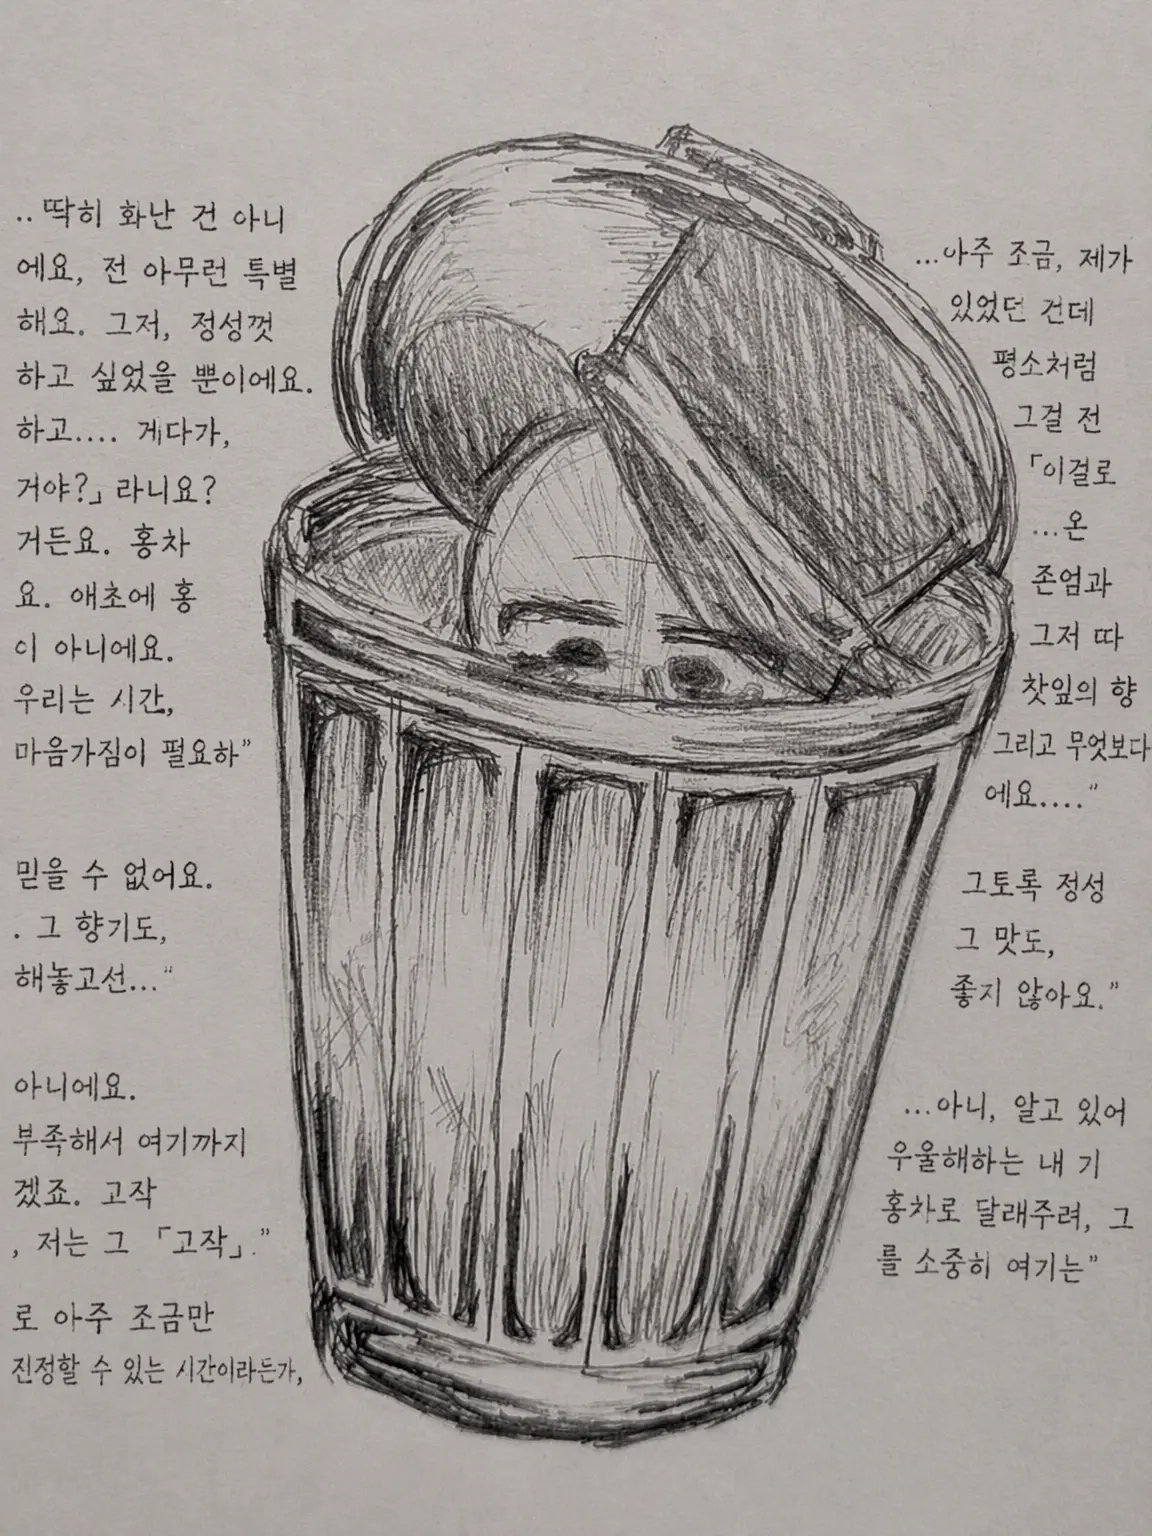 ..딱히 화난 건 아니
에요, 전 아무런 특별
해요. 그저, 정성껏
하고 싶었을 뿐이에요.
하고.... 게다가,
거야?」 라니요?
거든요. 홍차
요. 애초에 홍
이 아니에요.
우리는 시간,
마음가짐이 필요하"
믿을 수 없어요.
. 그 향기도,
해놓고선..."
아니에요.
부족해서 여기까지
겠죠. 고작
, 저는 그 「고작」."
로 아주 조금만
진정할 수 있는 시간이라든가,
...아주 조금, 제가
있었던 건데
평소처럼
그걸 전
「이걸로
...온
존엄과
그저 따
찻잎의 향
그리고 무엇보다
에요...."
그토록 정성
그 맛도,
좋지 않아요."
...아니, 알고 있어
우울해하는 내 기
홍차로 달래주려, 그
를 소중히 여기는"